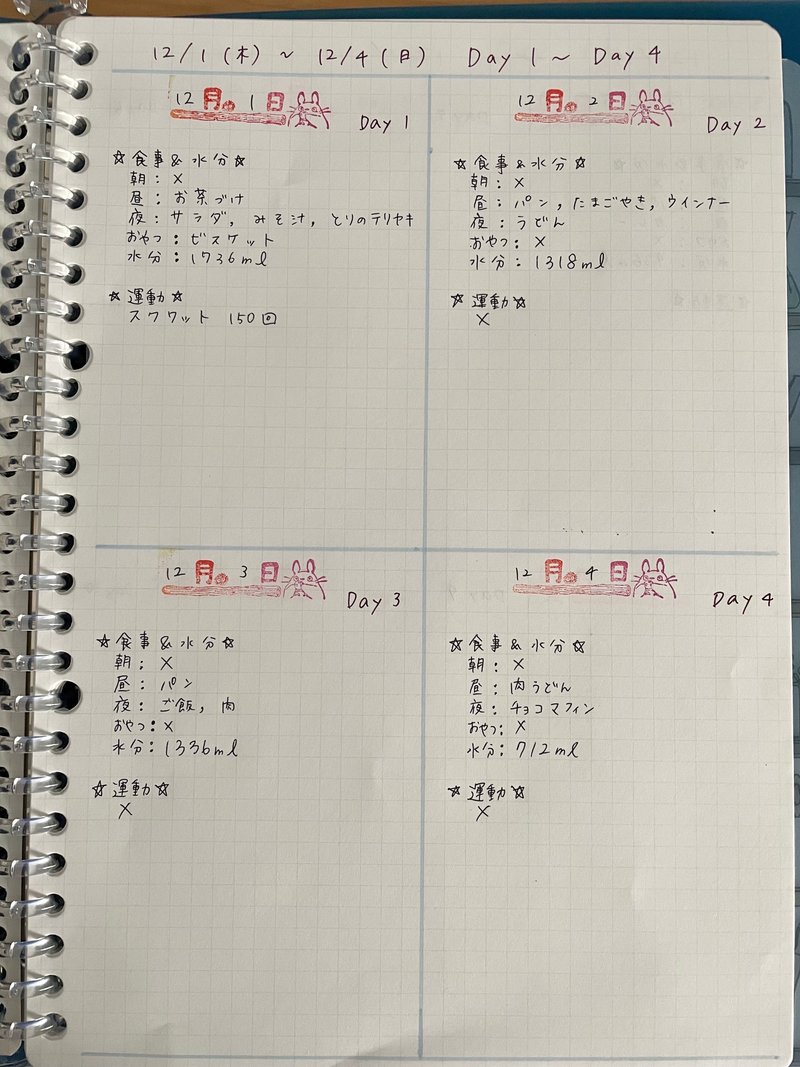 12/1(木) ~ 12/4(日) Day 1 ~ Day 4
12月 1日
Day 1
☆食事&水分☆
朝: X
昼: お茶づけ
夜: サラダ, みそ汁, とりのテリヤキ
おやつ: ビスケット
水分: 1736ml
☆運動☆
スクワット 150回
12月 2日
Day 2
☆食事&水分☆
朝: X
昼: パン, たまごやき, ウインナー
夜: うどん
おやつ: X
水分: 1318ml
☆運動☆
X
12月 3日
Day 3
☆食事&水分☆
朝: X
昼: パン
夜: ご飯, 肉
おやつ: X
水分: 1336ml
☆運動☆
X
12月 4日
Day 4
☆食事&水分☆
朝: X
昼: 肉うどん
夜: チョコマフィン
おやつ: X
水分: 712ml
☆運動☆
X